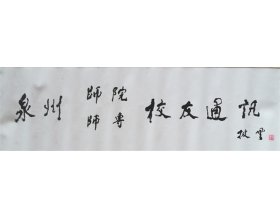 泉州
師院
師專
校友通訊
披雲